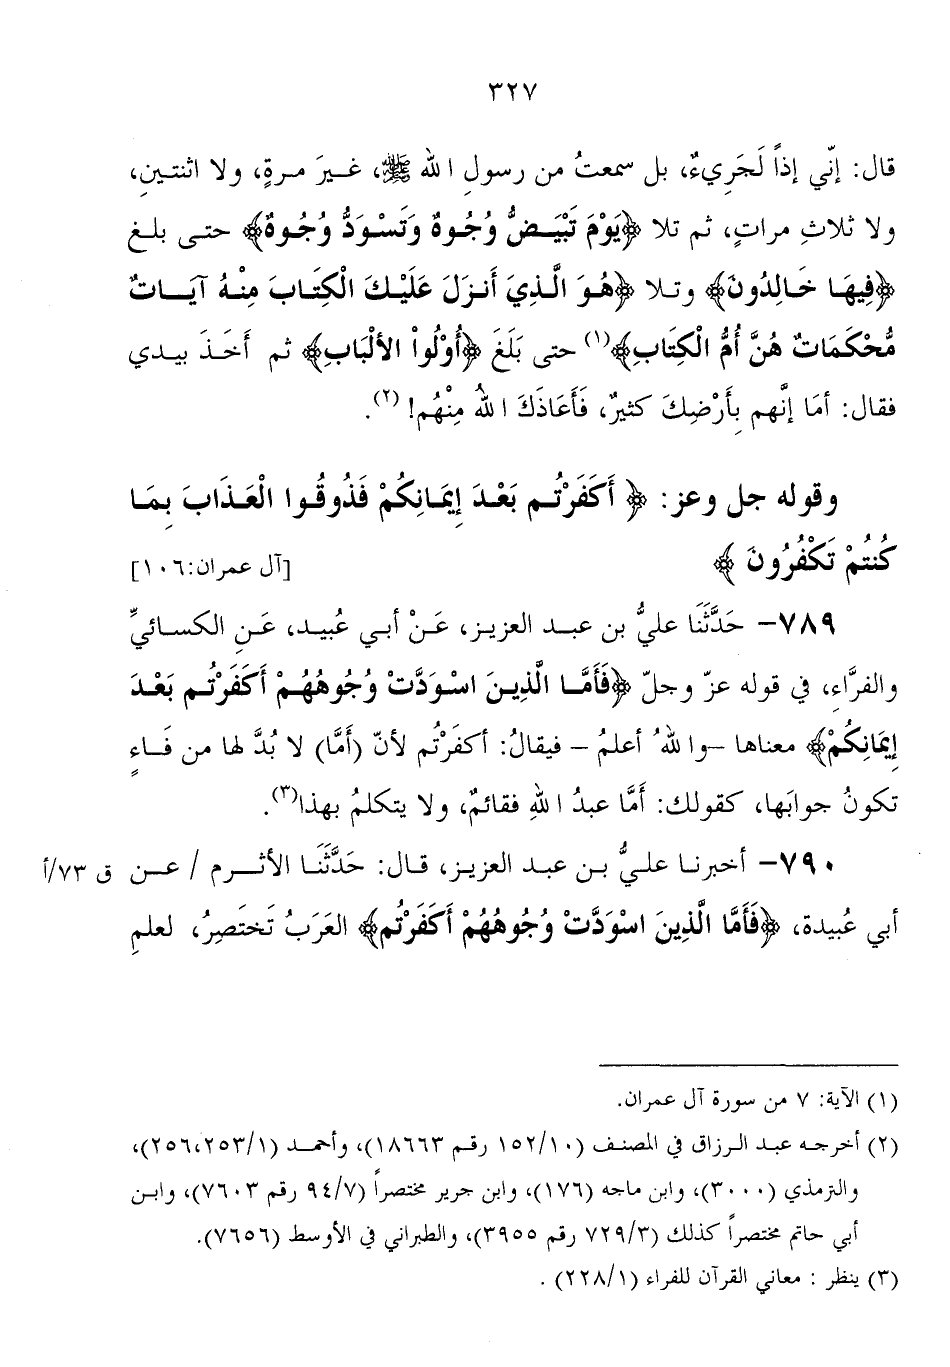 ٣٢٧
قال: إنّي إذاً لَجَرِيءٌ، بل سمعتُ من رسولِ الله ﷺ، غيرَ مرةٍ، ولا اثنتينِ،
ولا ثلاثِ مراتٍ، ثم تلا ﴿يَوْمَ تَبْيَضُّ وُجُوهٌ وَتَسْوَدُّ وُجُوهٌ﴾ حتى بلغ
﴿فِيهَا خَالِدُونَ﴾ وتلا ﴿هُوَ الَّذِيَ أَنزَلَ عَلَيْكَ الْكِتَابَ مِنْهُ آيَاتٌ
مُّحْكَمَاتٌ هُنَّ أُمُّ الْكِتَابِ﴾(١) حتى بَلَغَ ﴿أُوْلُواْ الألْبَابِ﴾ ثم أَخَذَ بيدي
فقال: أمَا إنَّهم بِأَرْضِكَ كثيرٌ، فَأَعَاذَكَ اللهُ مِنْهُم! (٢).
وقوله جل وعز: ﴿ أَكَفَرْتُم بَعْدَ إِيمَانِكُمْ فَذُوقُوا الْعَذَابَ بِمَا
كُنتُمْ تَكْفُرُونَ ﴾ [آل عمران:١٠٦]
٧٨٩- حَدَّثَنَا عليُّ بن عبد العزيز، عَنْ أبي عُبيد، عَنِ الكسائيِّ
والفرَّاءِ، في قوله عزّ وجلّ ﴿فَأَمَّا الَّذِينَ اسْوَدَّتْ وُجُوهُهُمْ أَكَفَرْتُم بَعْدَ
إِيمَانِكُمْ﴾ معناها -واللهُ أعلمُ - فيقالُ: أكفَرْتُم لأنّ (أمَّا) لا بُدَّ لها من فَاءٍ
تكونُ جوابَها، كقولك: أمَّا عبدُ اللهِ فقائمٌ، ولا يتكلمُ بهذا(٣).
٧٩٠- أخبرنا عليُّ بن عبد العزيز، قال: حَدَّثَنَا الأثرم / عن ق ٧٣/أ
أبي عُبيدة، ﴿فَأَمَّا الَّذِينَ اسْوَدَّتْ وُجُوهُهُمْ أَكَفَرْتُم﴾ العَرَبُ تَختَصِرُ، لعلمِ
(١) الآية: ٧ من سورة آل عمران.
(٢) أخرجه عبد الرزاق في المصنف (١٥٢/١٠ رقم ١٨٦٦٣)، وأحمد (٢٥٦،٢٥٣/١)،
والترمذي (٣٠٠٠)، وابن ماجه (١٧٦)، وابن جرير مختصراً (٩٤/٧ رقم ٧٦٠٣)، وابن
أبي حاتم مختصراً كذلك (٧٢٩/٣ رقم ٣٩٥٥)، والطبراني في الأوسط (٧٦٥٦).
(٣) ينظر : معاني القرآن للفراء (٢٢٨/١) .